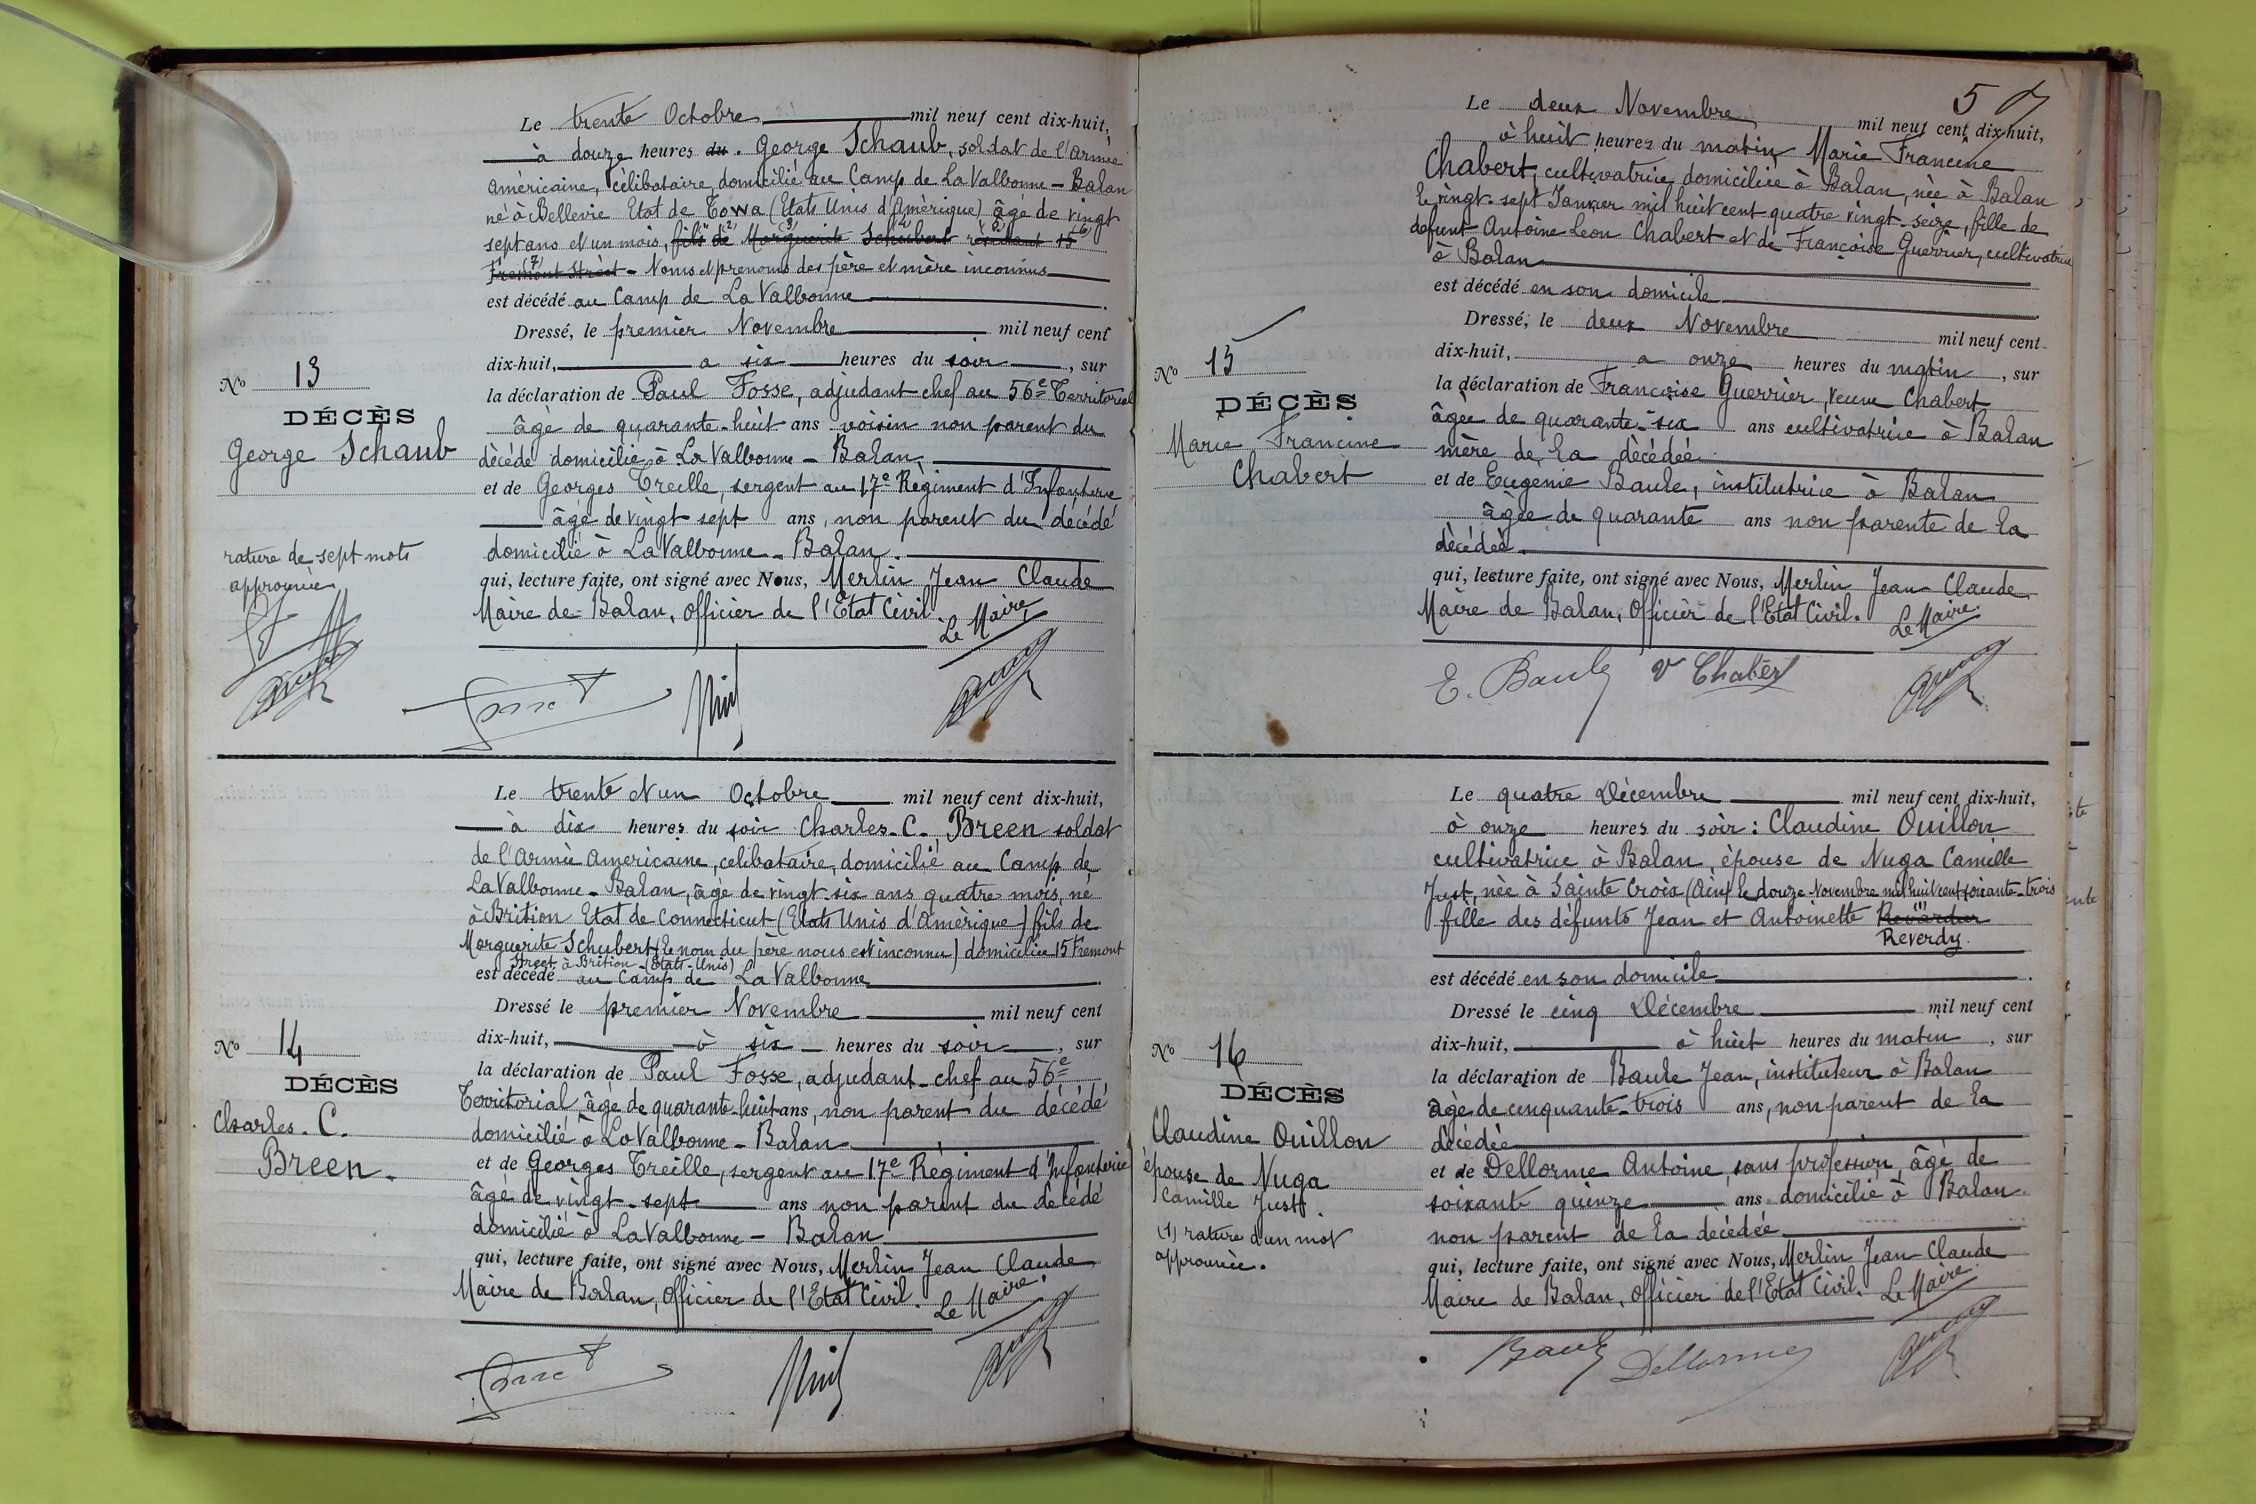 Le trente Octobre mil neuf cent dix-huit,
à douze heures du. George Schaub, soldat de l'armée
américaine, célibataire, domicilié au Camp de La Valbonne - Balan
né à Bellevie Etat de Towa (Etats Unis d'Amèrique) âgé de vingt
sept ans et un mois, fils de Marguerite Schubert résidant 15
Frémont Street - Noms et prenoms des père et mère inconnus
est décédé au Camp de La Valbonne
Dressé, le premier Novembre mil neuf cent
dix-huit, a six heures du soir, sur
la déclaration de Paul Fosse, adjudant chef au 56e Territorial
âgé de quarante-huit ans voisin non parent du
décédé domicilié à La Valbonne - Balan
et de Georges Treille, sergent au 17e Règiment d'Infanterie
âgé de vingt sept ans, non parent du décédé
domicilié à La Valbonne - Balan.
qui, lecture faite, ont signé avec Nous, Merlin Jean Claude
Maire de Balan, Officier de l'Etat Civil
Le Maire
No 13
DÉCÈS
George Schaub
rature de sept mots
approuvée
Le trente et un Octobre mil neuf cent dix-huit,
à dix heures du soir Charles. C. Breen soldat
de l'Armée Américaine, celibataire, domicilié au Camp de
La Valbonne - Balan, âgé de vingt six ans quatre mois, né
à Brition Etat de Connecticut (Etats Unis d'Amèrique) fils de
Morguerite Schubert (le nom du père nous est inconnu) domiciliée 15 Fremont
Street à Brition (Etats-Unis)
est décédé au Camp de La Valbonne
Dressé le premier Novembre mil neuf cent
dix-huit, à six heures du soir, sur
la déclaration de Paul Fosse, adjudant-chef au 56e
Territorial, âgé de quarante-huit ans, non parent du décédé
domicilié à La Valbonne - Balan
et de Georges Treille, sergent au 17e Régiment d'Infanterie
âgé de vingt-sept ans non parent du décédé
domicilié à La Valbonne - Balan
qui, lecture faite, ont signé avec Nous, Merlin Jean Claude
Maire de Balan, Officier de l'Etat Civil.
Le Maire.
No 14
DÉCÈS
Charles. C.
Breen.
5
Le deux Novembre mil neuf cent dix-huit,
à huit heures du matin Marie Francine
Chabert, cultivatrice domiciliée à Balan, née à Balan
le vingt-sept Janvier mil huit cent quatre vingt-seize, fille de
defunt Antoine Leon Chabert et de Françoise Guerrier, cultivatrice
à Balan
est décédé en son domicile
Dressé, le deux Novembre mil neuf cent
dix-huit, a onze heures du matin, sur
la déclaration de Françoise Guerrier, veuve Chabert
âgée de quarante-six ans cultivatrice à Balan
mère de la décédée
et de Eugenie Baule, institutrice à Balan
âgée de quarante ans non parente de la
décédée.
qui, lecture faite, ont signé avec Nous, Merlin Jean Claude
Maire de Balan, Officier de l'Etat Civil.
Le Maire.
E. Baule ve Chabert
No 15
DÉCÈS
Marie Francine
Chabert
Le quatre Décembre mil neuf cent dix-huit,
à onze heures du soir: Claudine Ouillon
cultivatrice à Balan, épouse de Nuga Camille
Just, née à Sainte Croix (Ain) le douze Novembre mil huit cent soixante-trois
fille des défunts Jean et Antoinette
Reverdy.
est décédé en son domicile
Dressé le cinq Décembre mil neuf cent
dix-huit, à huit heures du matin, sur
la déclaration de Baule Jean, instituteur à Balan
âgé de cinquante-trois ans, non parent de la
décédée
et de Dellorme Antoine, sans profession, âgé de
soixante quinze ans domicilié à Balan
non parent de la décédée
qui, lecture faite, ont signé avec Nous, Merlin Jean Claude
Maire de Balan, Officier de l'Etat Civil.
Le Maire.
Baule Dellorme
No 16
DÉCÈS
Claudine Ouillon
épouse de Nuga
Camille Just.
(1) rature d'un mot
approuvée.